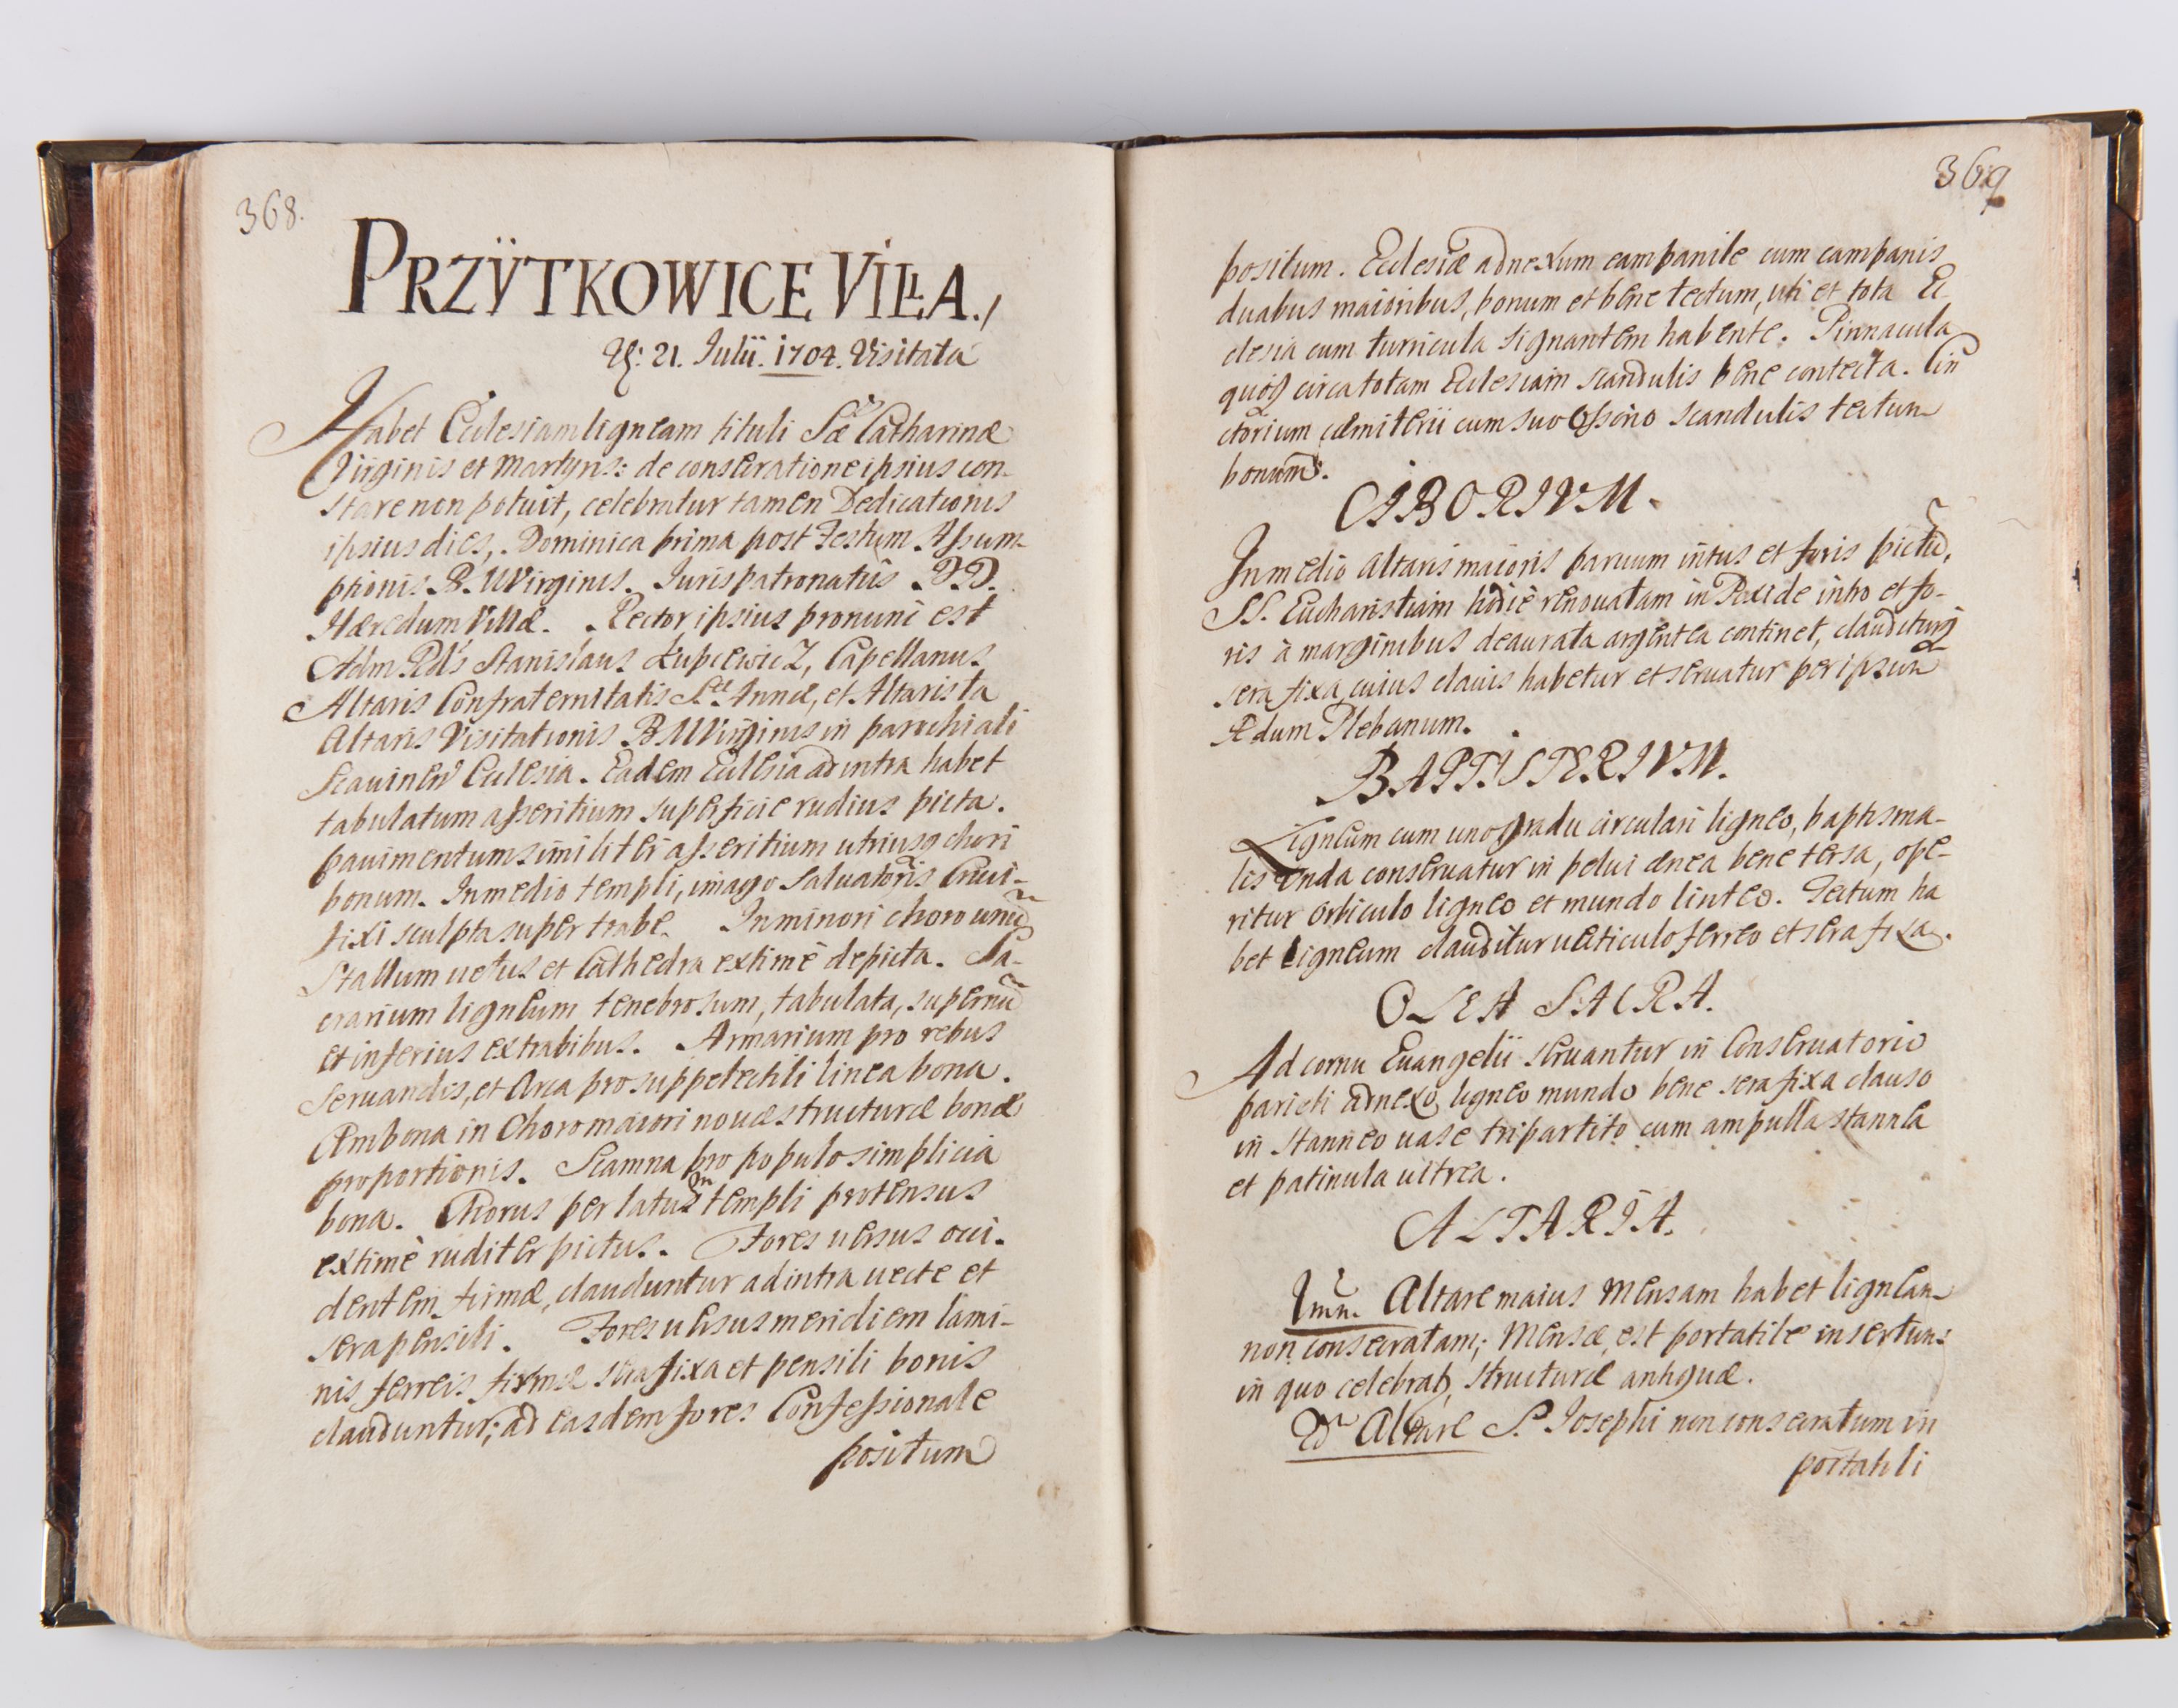 368.
PRZŸTKOWICE VILLA.
21. Iulii. 1704. Visitata
Habet Ecclesiam ligneam tituli Sæ Catharinæ
Virginis et Martyris: de consecratione ipsius con-
stare non potuit, celebratur tamen Dedicationis
ipsius dies, Dominica prima post Festum Assum-
ptionis B. M Virginis. Iuris patronatûs DD.
Hæredum Villæ. Rector ipsius pro nunc est
Adm Rds Stanislaus Łupcewicz, Capellanus
Altaris Confraternitatis Stæ Annæ, et Altarista
Altaris Visitationis B M Virginis in parochiali
Scavinen Ecclesia. Eadem Ecclesia ad intra habet
tabulatum asseritium superficie rudius picta.
pavimentum similiter asseritium utriusq chori
bonum. In medio templi, imago Salvatoris Cruci-
fixi sculpta super trabe. In minori choro unu
Stallum uetus et Cathedra extimè depicta. Sa-
crarium ligneum tenebrosum, tabulata, supernu
et inferius ex trabibus. Armarium pro rebus
seruandis, et Arca pro suppelectili linea bona.
Ambona in Choro maiori nouæ structuræ bonæ
proportionis. Scamna pro populo simplicia
bona. Chorus per latus templi protensus
extimè ruditer pictus. Fores uersus occi-
dentem firmæ, clauduntur ad intra uecte et
sera pensili. Fores uersus meridiem lami-
nis ferreis firmæ sera fixa et pensili bonis
clauduntur; ad easdem fores Confessionale
positum
369
positum. Ecclesiæ adnexum campanile cum campanis
duabus maioribus, bonum et bene tectum, uti et tota Ec
clesia cum turricula signantem habente. Pinnacula
quoq circa totam Ecclesiam scandulis bene contecta. Cin
ctorium cæmiterii cum suo Ossorio scandulis tectum
bonum.
CIBORIVM.
In medio Altaris maioris paruum intus et foris pictu,
SS. Eucharistiam hodiè renouatam in Pixide intro et fo-
ris à marginibus deaurata argentea continet, clauditurq
sera fixa, cuius clauis habetur et seruatur per ipsum
Ædum Plebanum.
BAPTISTERIVM.
Ligneum cum uno gradu circulari ligneo, baptisma-
lis Unda conseruatur in pelui ænea bene tersa, ope-
ritur Orbiculo ligneo et mundo linteo. Tectum ha
bet Ligneum clauditur uecticulo ferreo et sera fixa.
OLEA SACRA.
Ad cornu Euangelii seruantur in Conseruatorio
parieti adnexo ligneo mundo bene sera fixa clauso
in stanneo uase tripartito cum ampulla stannea
et patinula uitrea.
ALTARIA.
Imu. Altare maius Mensam habet ligneam
non consecratam; Mensæ est portatile insertum
in quo celebrat, structuræ antiquæ.
2dm Altare S. Iosephi non consecratum in
portatili